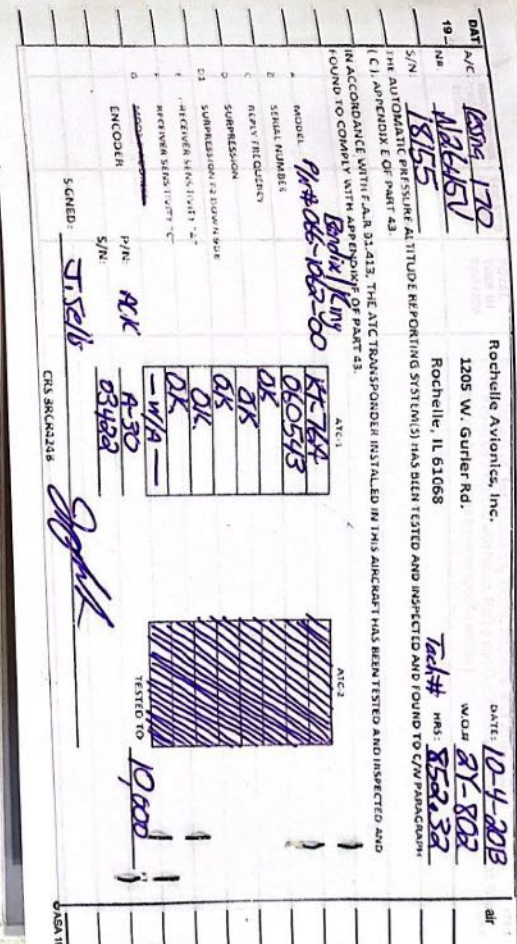 DAT
19
air
Rochelle Avionics, Inc.
1205 W. Gurler Rd.
Rochelle, IL 61068
DATE: 10-4-2013
A/C 170
W.O.# 2Y-802
N# N2645V
Tach# HRS: 852.32
S/N: 18155
THE AUTOMATIC PRESSURE ALTITUDE REPORTING SYSTEM(S) HAS BEEN TESTED AND INSPECTED AND FOUND TO C/W PARAGRAPH
(C), APPENDIX E OF PART 43.
IN ACCORDANCE WITH F.A.R 91.413, THE ATC TRANSPONDER INSTALLED IN THIS AIRCRAFT HAS BEEN TESTED AND INSPECTED AND
FOUND TO COMPLY WITH APPENDIX F OF PART 43.
Bendix/King
ATC-1
ATC-2
A MODEL P/N# 066-1062-00 KT-76A
B SERIAL NUMBER 060543
C REPLY FREQUENCY OK
D SUPPRESSION OK
D1 SUPPRESSION P2 DOWN 9DB OK
E RECEIVER SENSITIVITY "A" OK.
F RECEIVER SENSITIVITY "C" OK
G - N/A -
ENCODER P/N: ACK A-30 TESTED TO 10,600
S/N: 03422
SIGNED: J. Sells
CRS 3RCR424B
©ASA 19